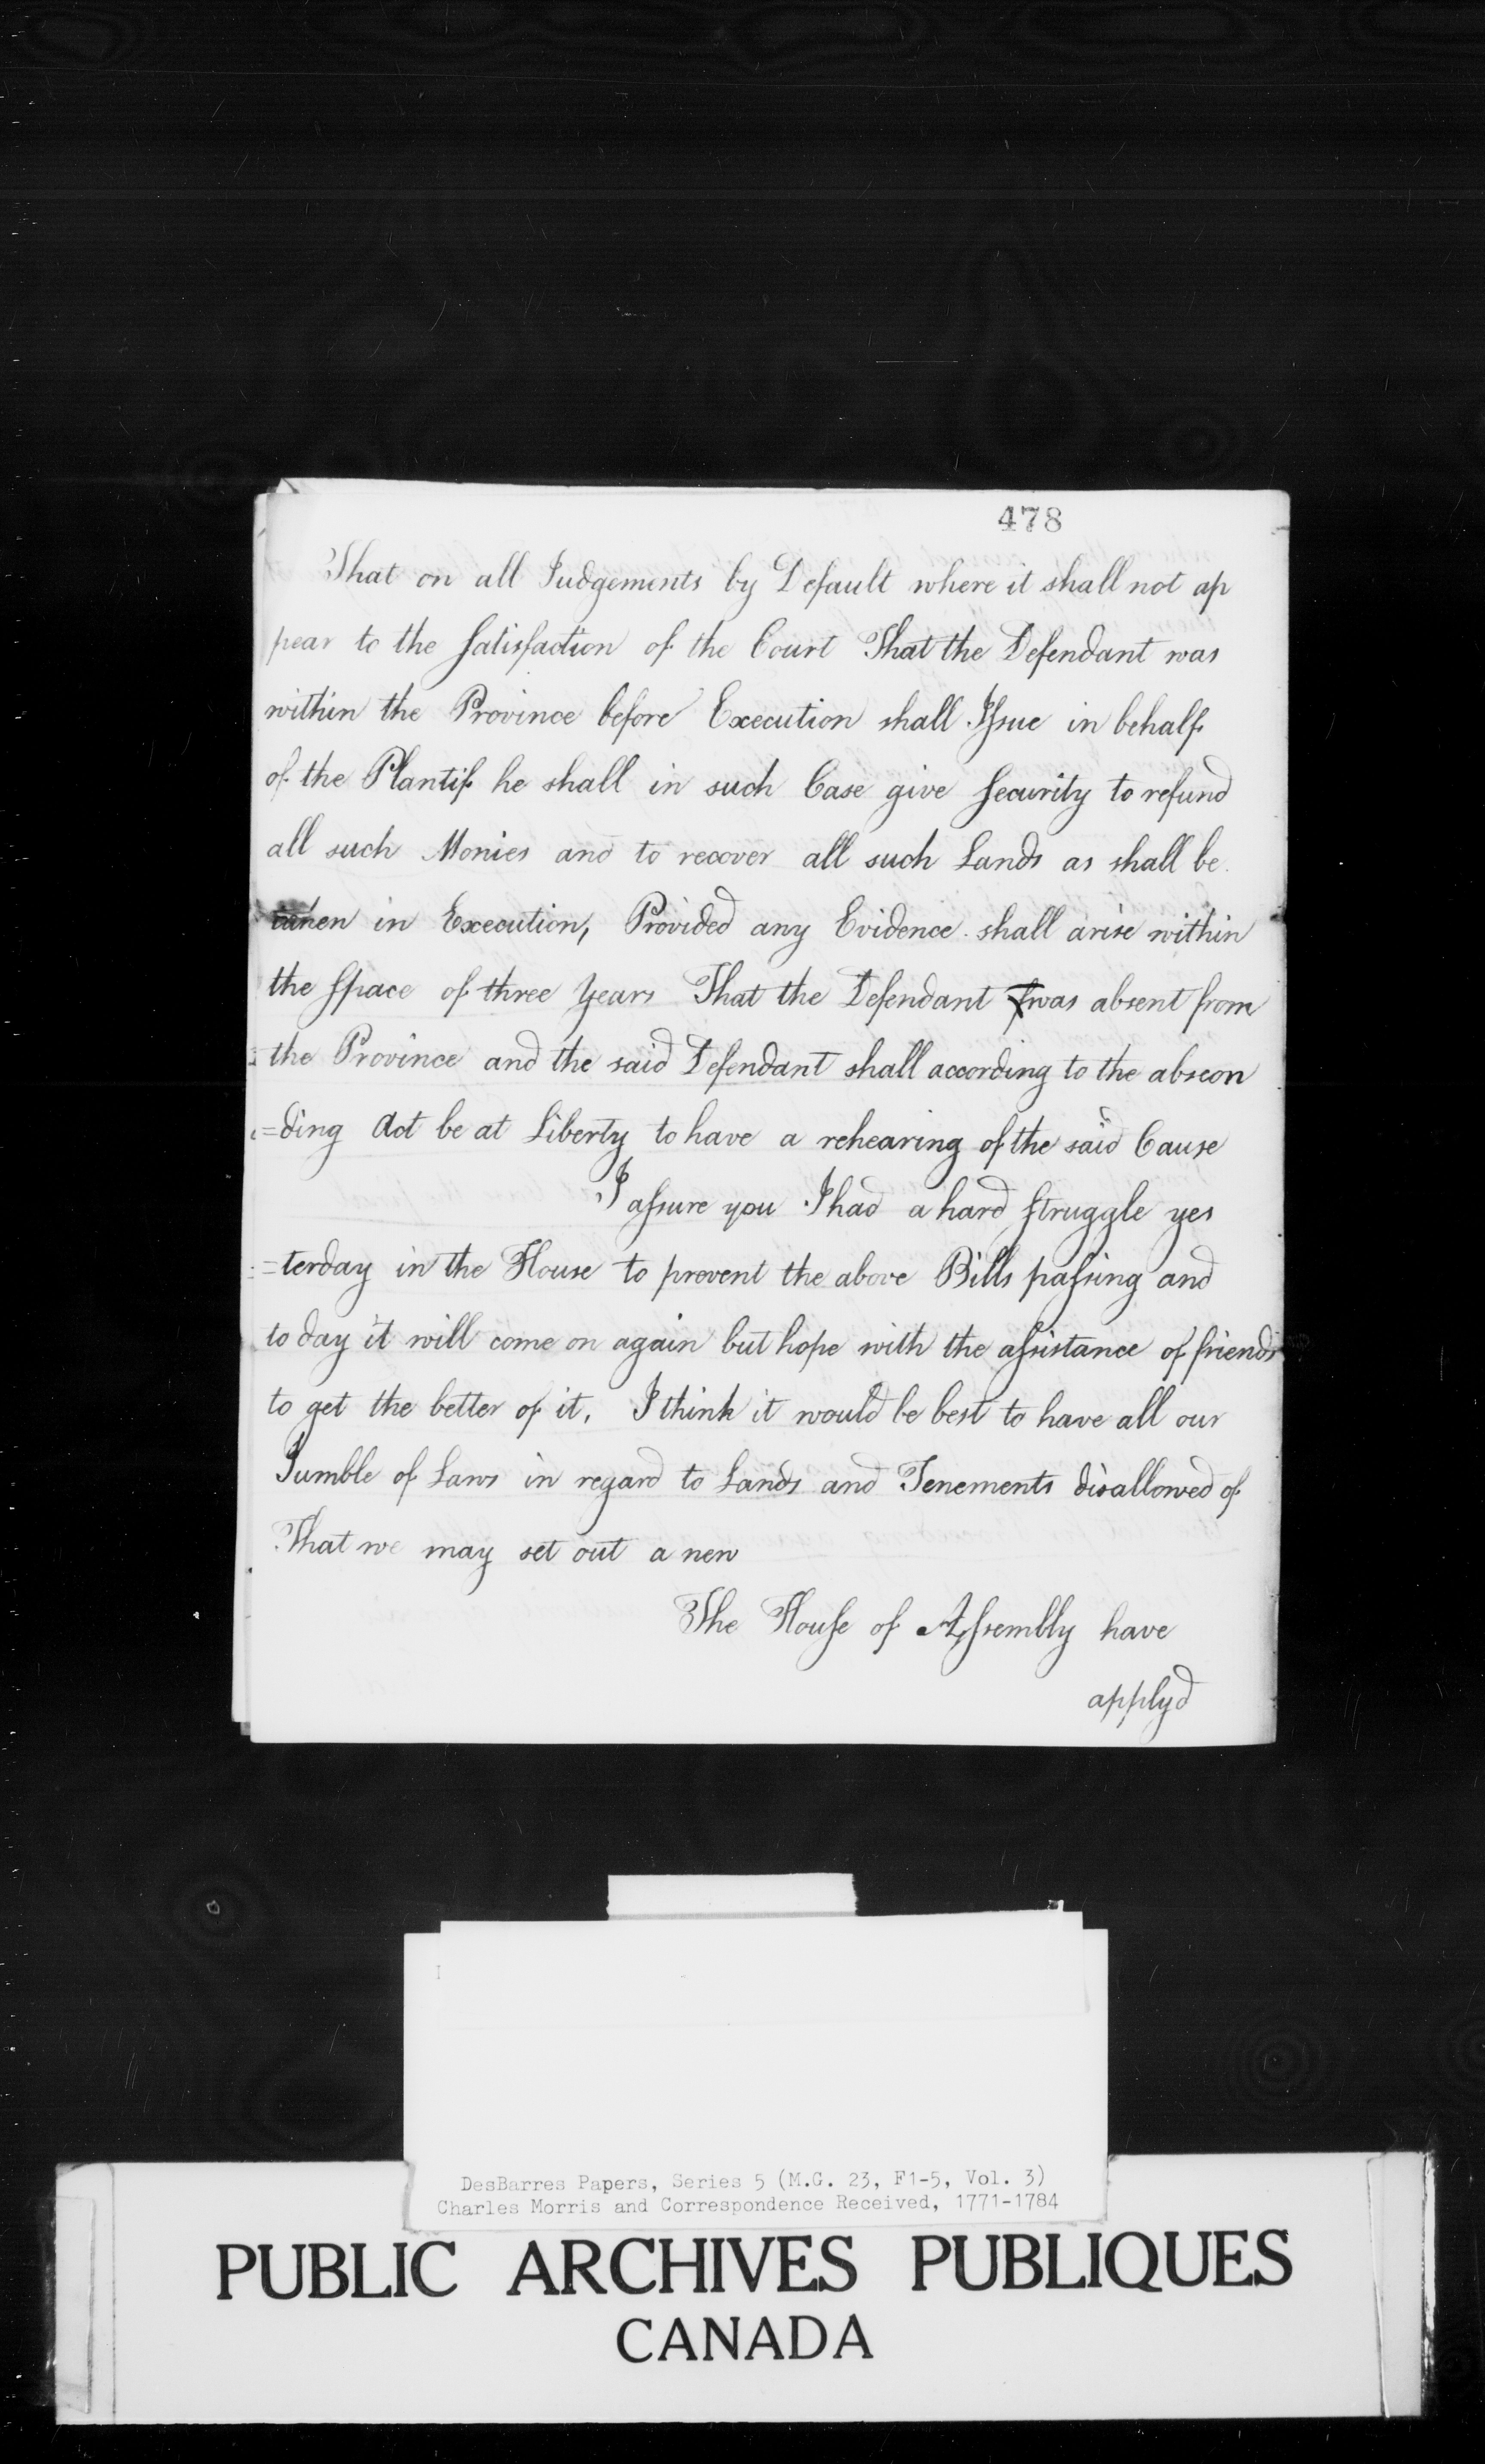 478
That on all Judgements by Default where it shall not ap
pear to the Satisfaction of the Court That the Defendant was
within the Province before Execution shall Issue in behalf
of the Plantif he shall in such Case give Security to refund
all such Monies and to recover all such Lands as shall be
taken in Execution, Provided any Evidence shall arise within
the Space of three Years That the Defendant was absent from
the Province and the said Defendant shall according to the abscon
=ding Act be at Liberty to have a rehearing of the said Cause
I assure you I had a hard Struggle yes
=terday in the House to prevent the above Bills passing and
to day it will come on again but hope with the assistance of friends
to get the better of it, I think it would be best to have all our
Jumble of Laws in regard to Lands and Tenements disallowed of
That we may set out a new
The House of Assembly have
applyd
DesBarres Papers, Series 5 (M.G. 23, F1-5, Vol. 3)
Charles Morris and Correspondence Received, 1771-1784
PUBLIC ARCHIVES PUBLIQUES
CANADA